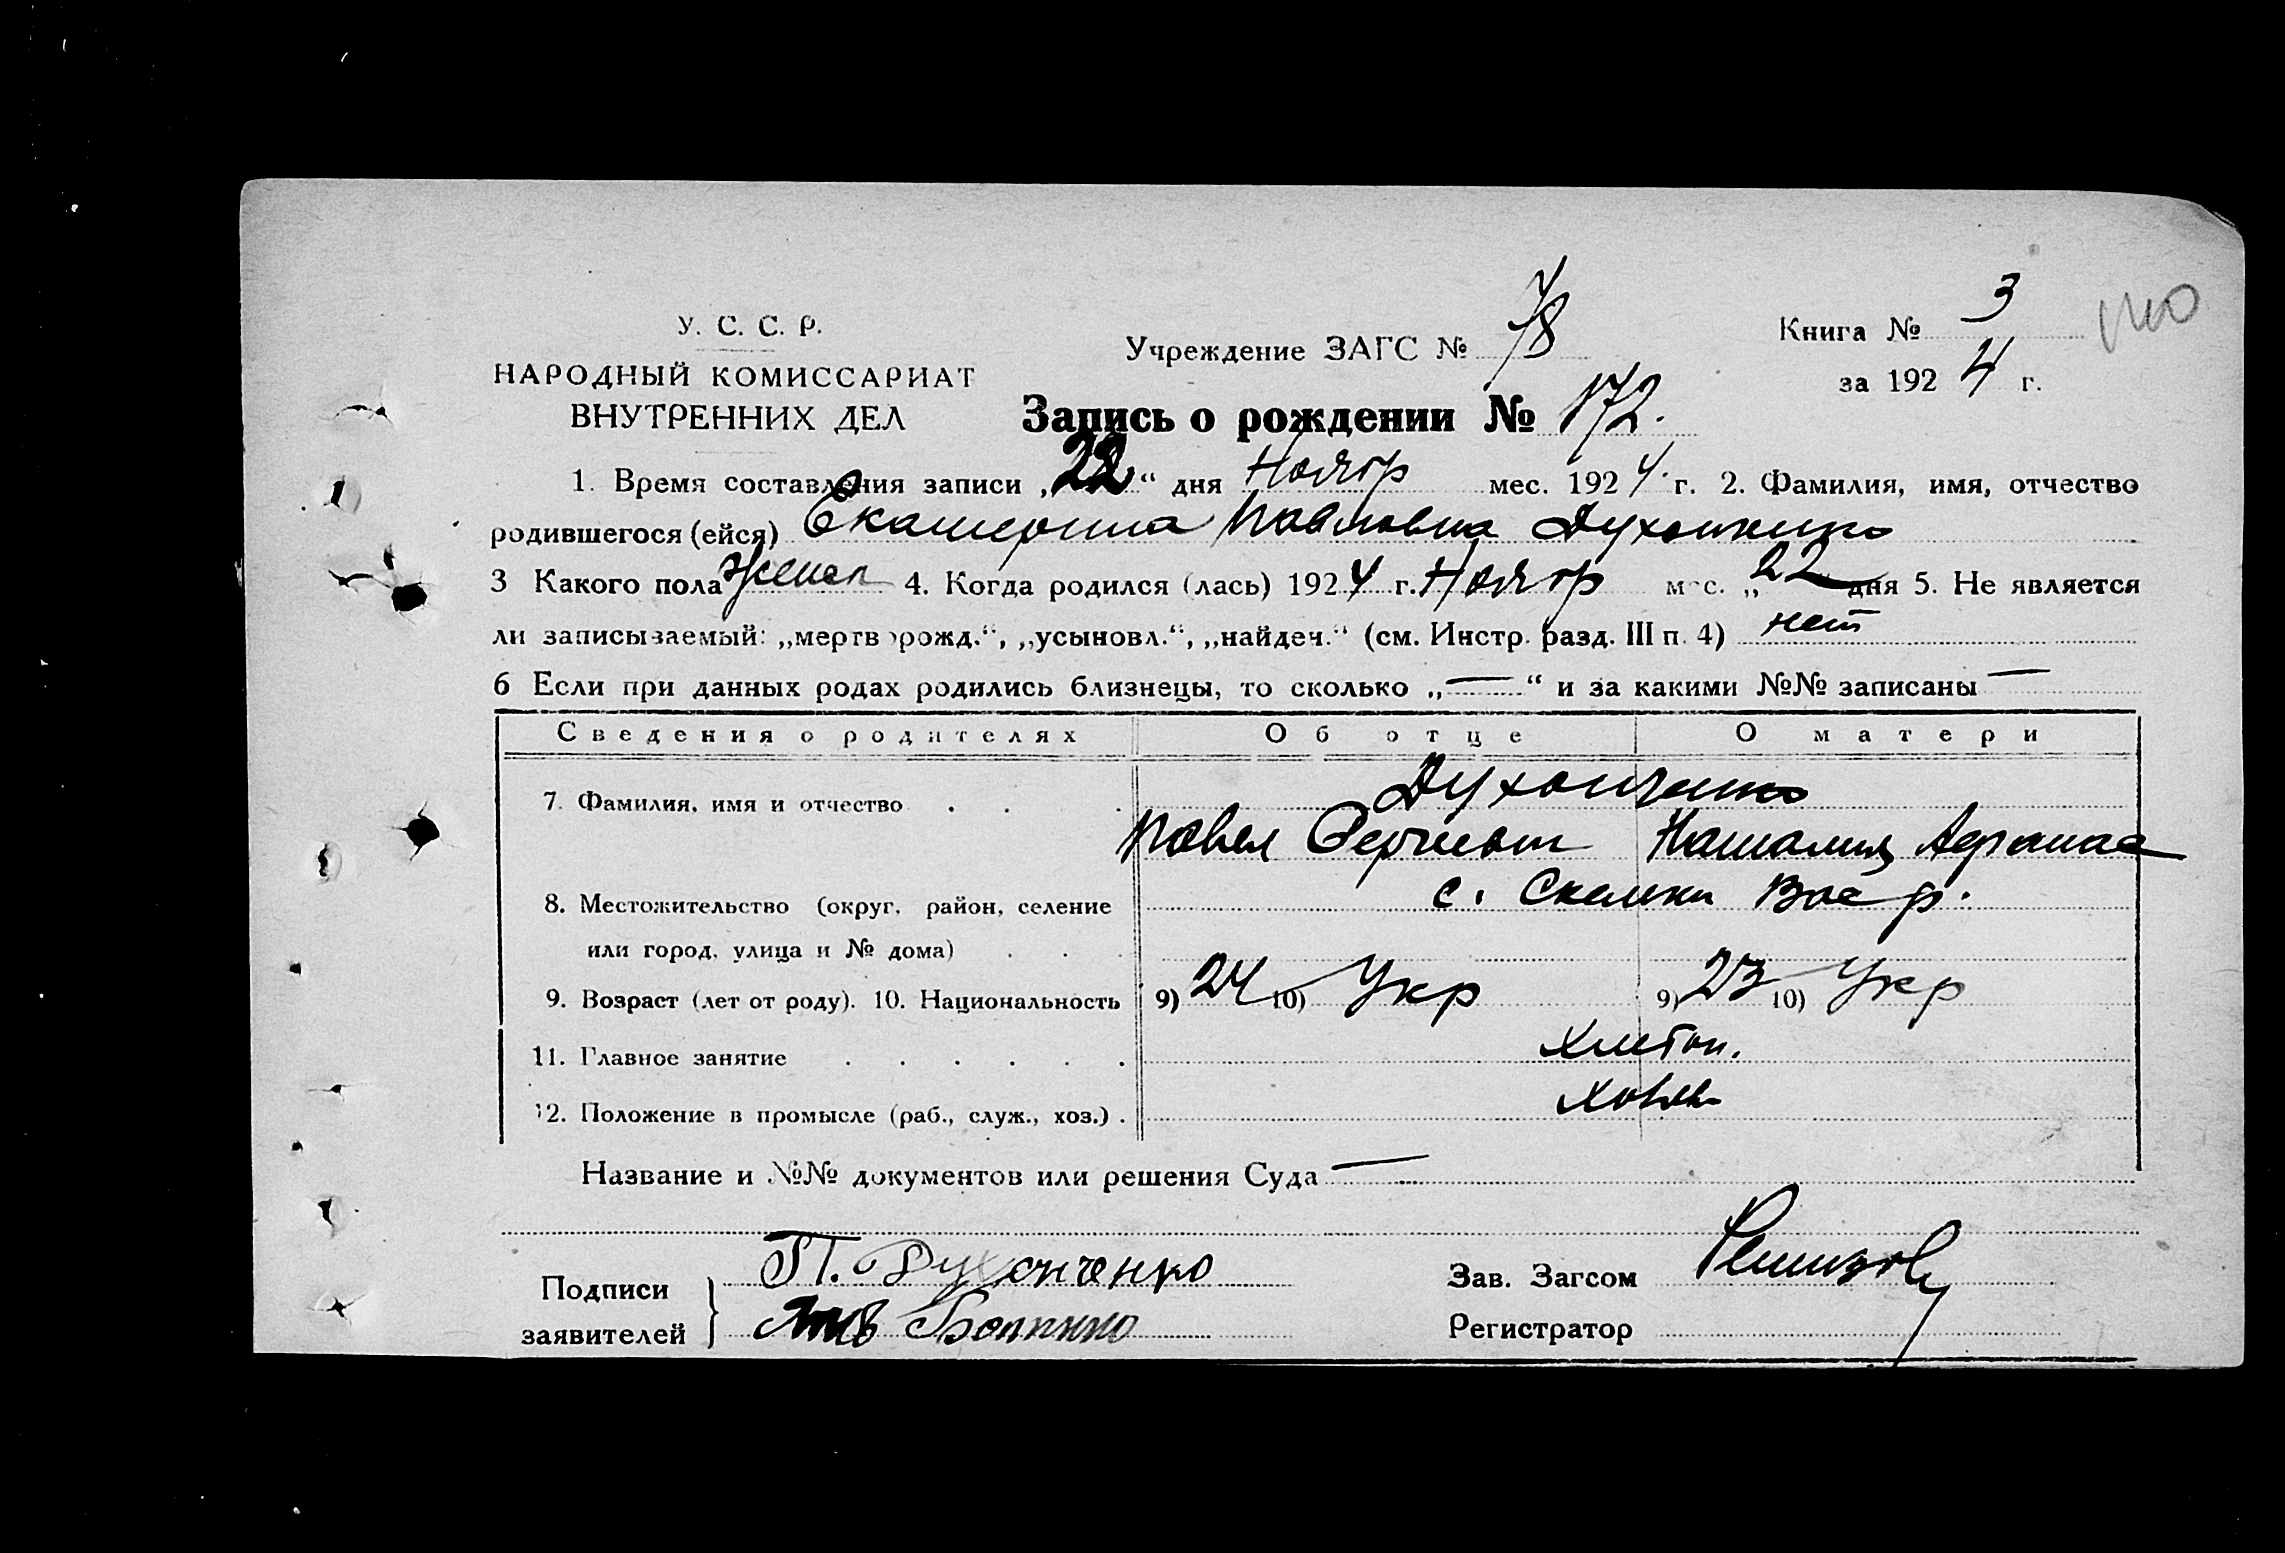 У. С. С. Р.
НАРОДНЫЙ КОМИССАРИАТ
ВНУТРЕННИХ ДЕЛ
Учреждение ЗАГС № 78
Книга № 3
за 1924 г.
Запись о рождении № 172.
1. Время составления записи „22“ дня Ноябр мес. 1924 г. 2. Фамилия, имя, отчество
родившегося (ейся) Екатерина Павловна Духонченко
3 Какого пола женск 4. Когда родился (лась) 1924 г. Ноябр мес. „22 дня 5. Не является
ли записываемый: „мертворожд.“, „усыновл.“, „найдеч.“ (см. Инстр. разд. III п. 4) нет
6 Если при данных родах родились близнецы, то сколько „—“ и за какими №№ записаны —
Сведения о родителях Об отце О матери
7. Фамилия, имя и отчество Духонченко
Павел Сергиевич Наталия
8. Местожительство (округ, район, селение с. Скельки Вас р.
или город, улица и № дома)
9. Возраст (лет от роду). 10. Национальность 9) 24 10) Укр 9) 23 10) Укр
11. Главное занятие
12. Положение в промысле (раб., служ., хоз.)
Название и №№ документов или решения Суда —
Подписи
заявителей
П. Духонченко
Зав. Загсом
Регистратор